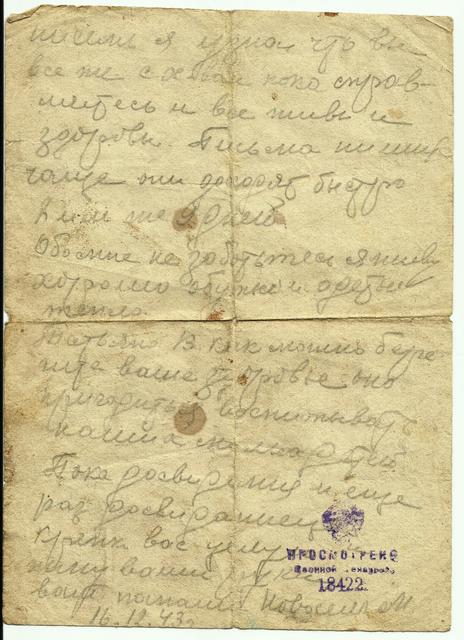 письма я узнал что вы
все же с хатой пока справ-
ляетесь и все живы и
здоровы. Письма пишите
чаще они доходят быстро
дней
Обо мне не заботьтесь я живу
хорошо обутый и одетый
тепло.
Татьяна В. как можно бере-
гите ваше здоровье оно
пригодиться воспитывать
наших детей
Пока досвидания и еще
раз досвидание
Крепко вас целую
ваш
ваш папаша
16.12.43г
ПРОСМОТРЕНО
Военной Цензурой
18422